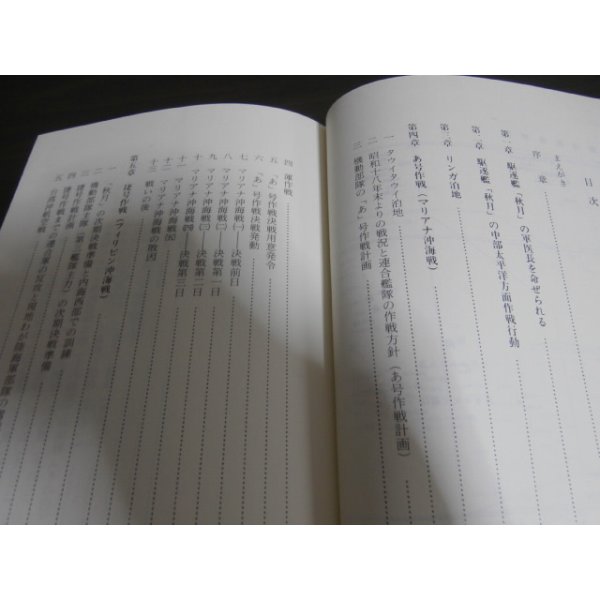 目次
まえがき
序章
第一章 駆逐艦「秋月」の軍医長を命ぜられる
第二章 駆逐艦「秋月」の中部太平洋方面作戦行動
第三章 リンガ泊地
第四章 あ号作戦(マリアナ沖海戦)
一 タウイタウイ泊地
二 昭和十八年末よりの戦況と連合艦隊の作戦方針(あ号作戦計画)
三 機動部隊の「あ」号作戦計画
四 渾作戦
五 「あ」号作戦決戦用意発令
六 「あ」号作戦決戦発動
七 マリアナ沖海戦㈠——決戦前日
八 マリアナ沖海戦㈡——決戦第一日
九 マリアナ沖海戦㈢——決戦第二日
十 マリアナ沖海戦㈣——決戦第三日
十一 マリアナ沖海戦㈤
十二 マリアナ沖海戦の敗因
十三 戦いの後
第五章 捷号作戦(フィリピン沖海戦)
一 「秋月」の次期決戦準備・内海西部での訓練
二 機動部隊本隊(第三艦隊主力)の次期決戦準備
三 捷号作戦計画
四 捷号作戦まで
五 台湾沖航空戦